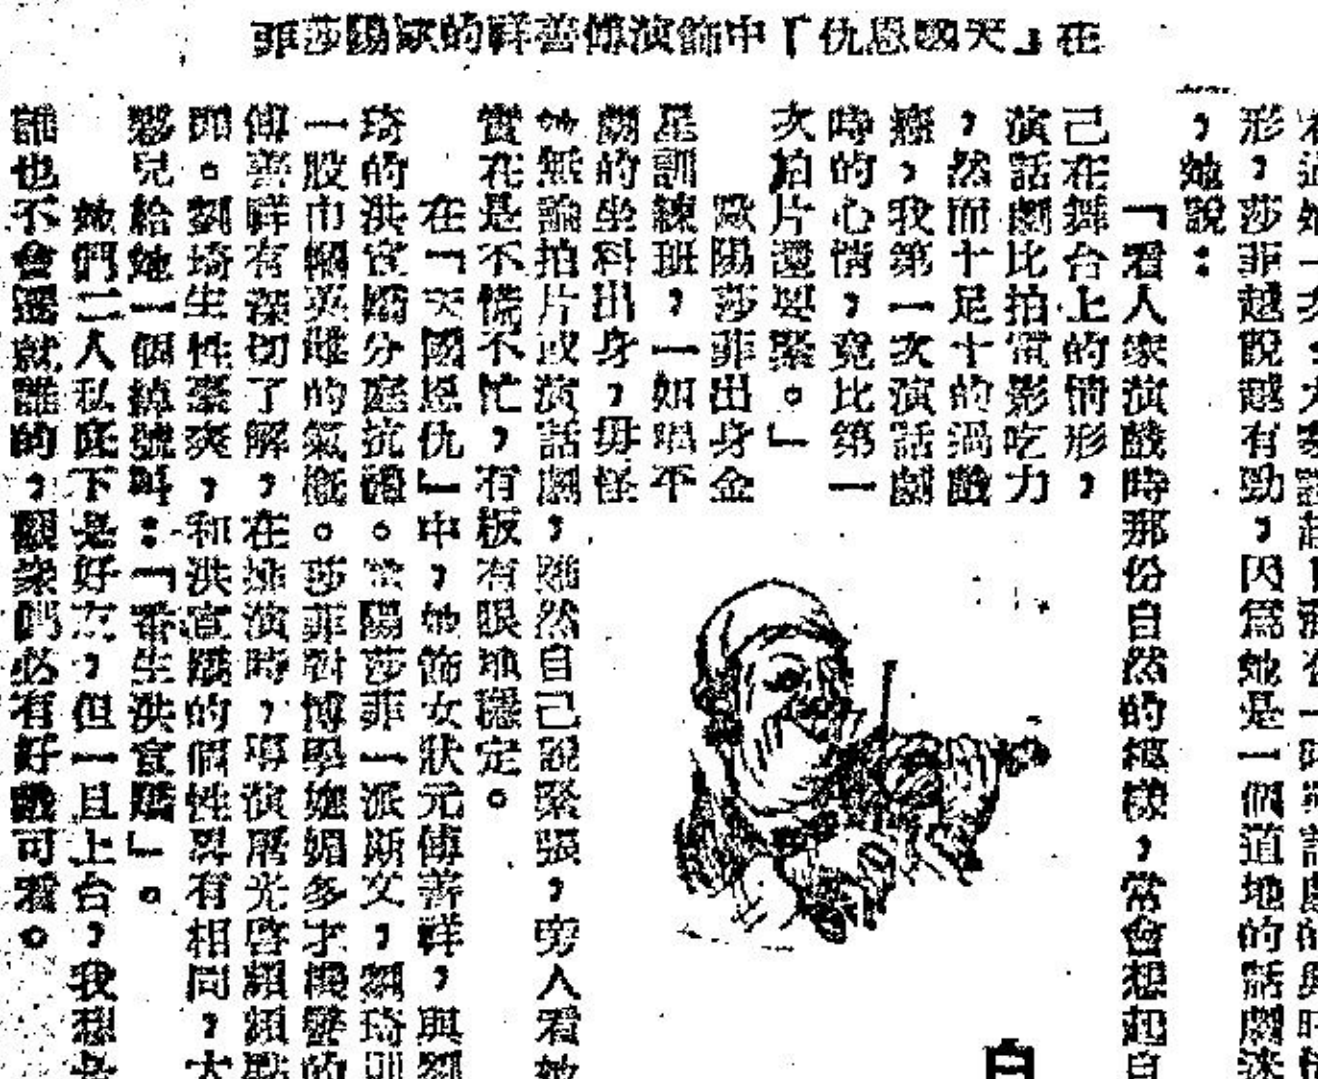 在「天國恩仇」中飾演傅善祥的歐陽莎菲
形，莎菲越說越有勁，因爲她是一個道地的話劇迷
，她說：
「看人家演戲時那份自然的模樣，常會想起自
己在舞台上的情形，
演話劇比拍電影吃力
，然而十足十的過戲
癮，我第一次演話劇
時的心情，竟比第一
次拍片還要緊。」
歐陽莎菲出身金
星訓練班，一如唱平
劇的坐科出身，毋怪
她無論拍片或演話劇，雖然自己說緊張，旁人看她
實在是不慌不忙，有板有眼地穩定。
在「天國恩仇」中，她飾女狀元傅善祥，與劉
琦的洪宣嬌分庭抗禮。歐陽莎菲一派斯文，劉琦則
一股巾幗英雄的氣概。莎菲對博學嫵媚多才機警的
傅善祥有深切了解，在排演時，導演屠光啓頻頻點
頭。劉琦生性豪爽，和洪宣嬌的個性畧有相同，大
夥兒給她一個綽號叫：「番生洪宣嬌」。
她們二人私底下是好友，但一旦上台，我想是
誰也不會遷就誰的，觀衆們必有好戲可看。